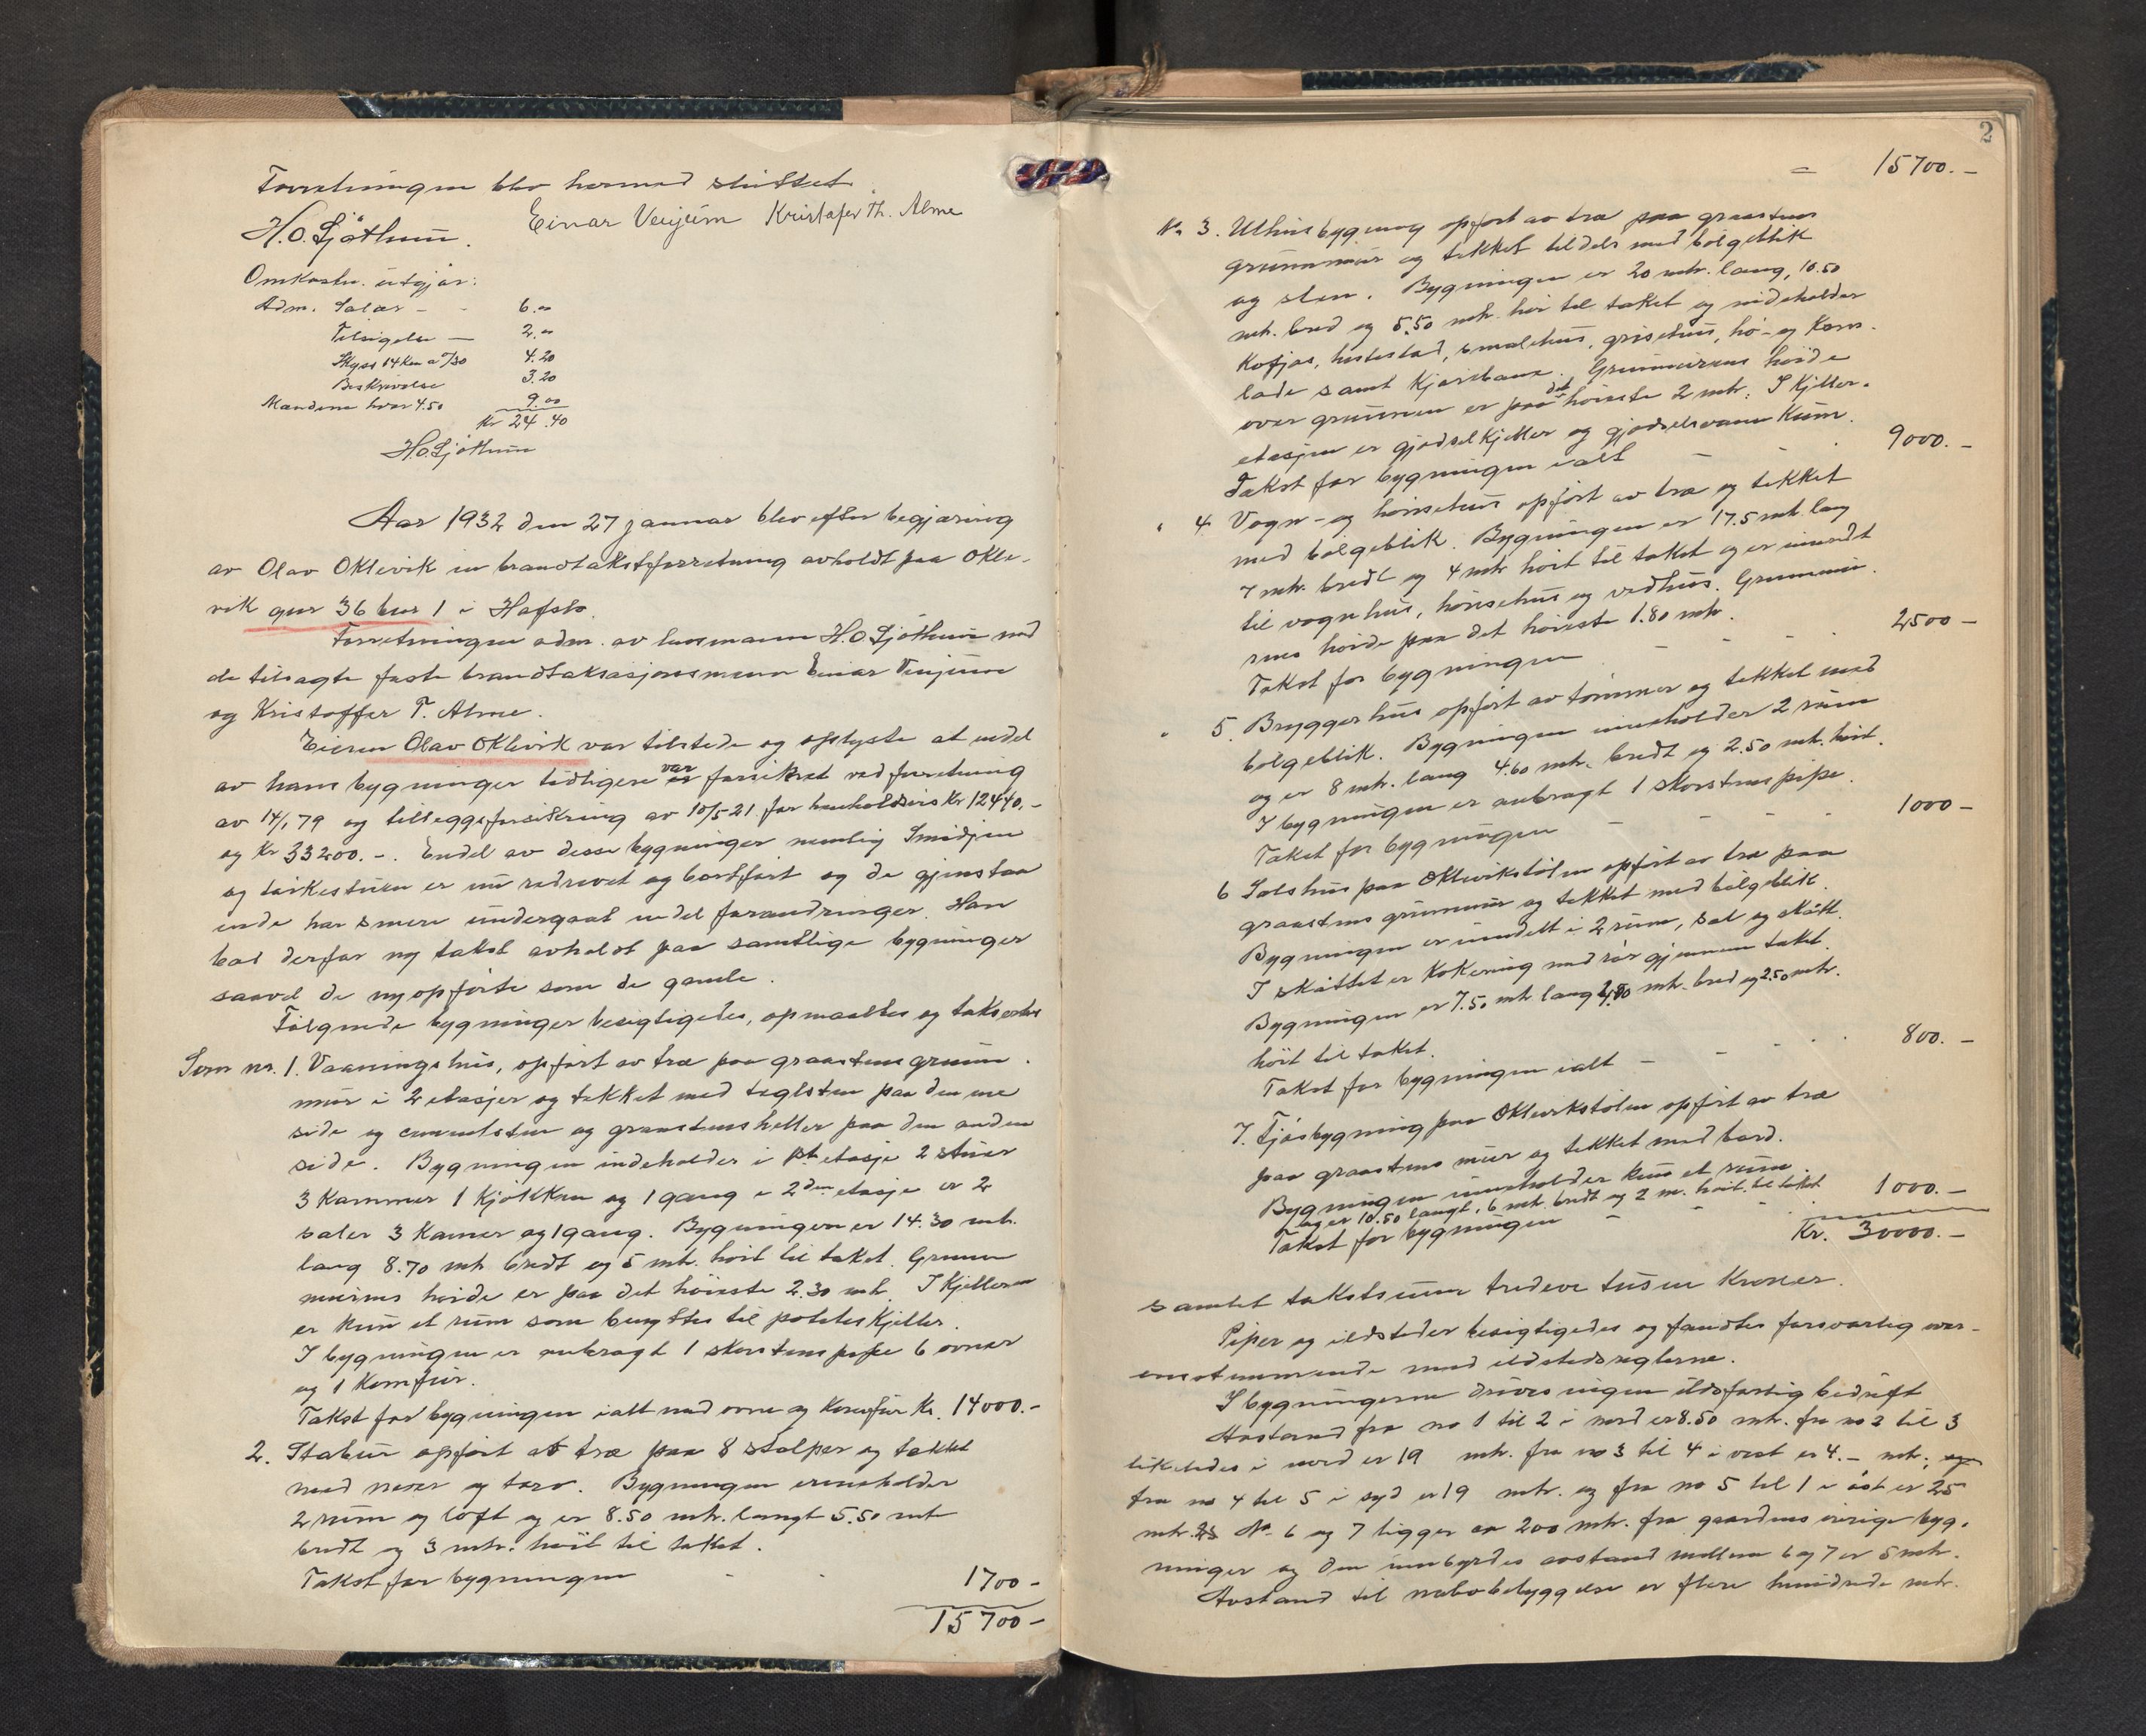 Forretningen blev hermed sluttet.
H.O. Sjøthun. Einar Venjum Kristofer Th. Alme
Omkostn. utgjør:
Adm. Salær - - 6.00
Tilsigelse — 2.00
Skyss 14 km a 0/30 4.20
Beskrivelse 3.20
Mændene hver 4.50 9.00
Kr 24.40
H.O. Sjøthun
Aar 1932 den 27 januar blev efter begjæring
av Olav Oklevik en brandtakstforretning avholdt paa Okle-
vik gnr 36 bnr 1 i Hafslo.
Forretningen adm. av lensmann H.O. Sjøthun med
de tilsagte faste brandtaksasjonsmenn Einar Venjum
og Kristoffer T. Alme.
Eieren Olav Oklevik var tilstede og oplyste at endel
av hans bygninger tidligere var forsikret ved forretning
av 14/1 79 og tilleggsforsikring av 10/5 21 for henholdsvis Kr 12440.-
og Kr 33200.-. Endel av desse bygninger nemlig Smidjen
og tørkestuen er nu nedrevet og bortført og de gjenstaa
ende har smere undergaat endel forandringer. Han
bad derfor ny takst avholdt paa samtlige bygninger
saavel de nyopførte som de gamle.
Følgende bygninger besigtigedes, opmaaltes og taksertes
Som nr. 1. Vaaningshus, opført av træ paa graastens grunn-
mur i 2 etasjer og tekket med teglsten paa den ene
side og cementsten og graastensheller paa den anden
side. Bygningen indeholder i 1ste etasje 2 stuer
3 kammer 1 kjøkken og 1 gang i 2den etasje er 2
saler 3 kamer og 1 gang. Bygningen er 14.30 mtr.
lang 8.70 mtr bredt og 5 mtr. høit til taket. Grunn
murens høide er paa det høieste 2.30 mtr. I kjelleren
er kun et rum som benyttes til poteteskjeller.
I bygningen er anbragt 1 skorstenspipe 6 ovner
og 1 komfur.
Takst for bygningen ialt med ovne og komfur Kr. 14000.-
2. Stabur opført av træ paa 8 stolper og tekket
med never og torv. Bygningen inneholder
2 rum og loft og er 8.50 mtr. langt 5.50 mtr
bredt og 3 mtr. høit til taket.
Takst for bygningen - - 1700-
15700-
2
= 15700.-
No 3. Uthusbygning opført av træ paa graastens
grunnmur og tekket tildels med bølgeblik
og sten. Bygningen er 20 mtr. lang, 10.50
mtr. bred og 5.50 mtr. høi til taket og indeholder
Kofjøs, hestestad, smalehus, grisehus, hø- og korn-
lade samt kjørebane. Grunnmurens høide
over grunnen er paa det høieste 2 mtr. I kjeller-
etasjen er gjødselkjeller og gjødselvann kum.
Takst for bygningen ialt - - - 9000.-
" 4 Vogn- og hønsehus opført av træ og tekket
med bølgeblik. Bygningen er 17.5 mtr. lang
7 mtr. bredt og 4 mtr høit til taket og er innredt
til vognhus, hønsehus og vedhus. Grunnmu-
rens høide paa det høieste 1.80 mtr.
Takst for bygningen - - - 2500-
" 5. Bryggerhus opført av tømmer og tekket med
bølgeblik. Bygningen inneholder 2 rum
og er 8 mtr. lang 4.60 mtr. bredt og 2.50 mtr. høit.
I bygningen er anbragt 1 skorstenspipe.
Takst for bygningen - - - - 1000-
6 Selshus paa Oklevikstølen opført av træ paa
graastens grunnmur og tekket med bølgeblik.
Bygningen er inndelt i 2 rum, sel og skått.
I skåttet er kokeovn med rør gjennem taket.
Bygningen er 7.50 mtr lang 4,80 mtr. bred og 2.50 mtr.
høit til taket.
Takst for bygningen ialt - - - - 800.-
7. Fjøsbygning paa Oklevikstølen opført av træ
paa graastens mur og tekket med bord.
Bygningen inneholder kun et rum.
og er 10.50 langt, 6 mtr. bredt og 2 m. høit til taket
Takst for bygningen - - - 1000.-
Kr. 30000.-
Samlet takstsum tredeve tusen kroner.
Piper og ildsteder besigtigedes og fandtes forsvarlig over-
ensstemmende med ildstedsreglerne.
I bygningerne drives ingen ildsfarlig bedrift
Avstand fra no 1 til 2 i nord er 8.50 mtr. fra no 2 til 3
likeledes i nord er 19 mtr. fra no 3 til 4 i vest er 4.- mtr. og
fra no 4 til 5 i syd er 19 mtr. og fra no 5 til 1 i øst er 25
mtr. No 6 og 7 ligger ca 200 mtr. fra gaardens øvrige byg-
ninger og den innbyrdes avstand mellem 6 og 7 er 5 mtr.
Avstand til nabobebyggelse er flere hundrede mtr.